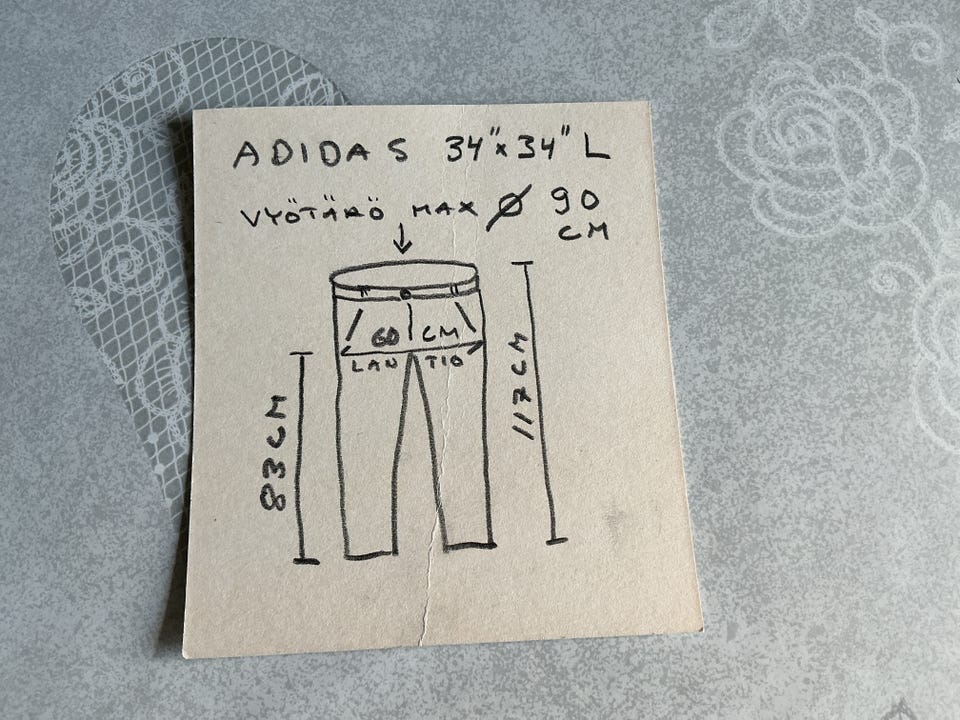 ADIDAS 34"x34" L
VYÖTÄRÖ MAX Ø 90
CM
60 CM
LANTIO
83CM
117CM